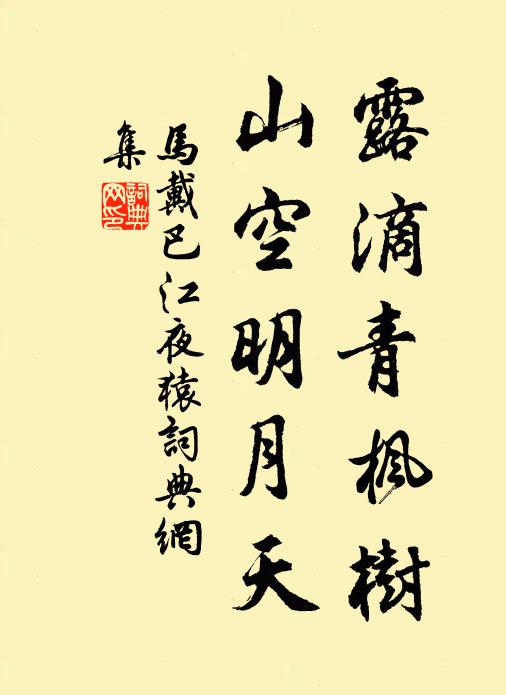 露滴青楓樹
山空明月天
馬戴巴江夜猿詞典網
集
詞典
网印